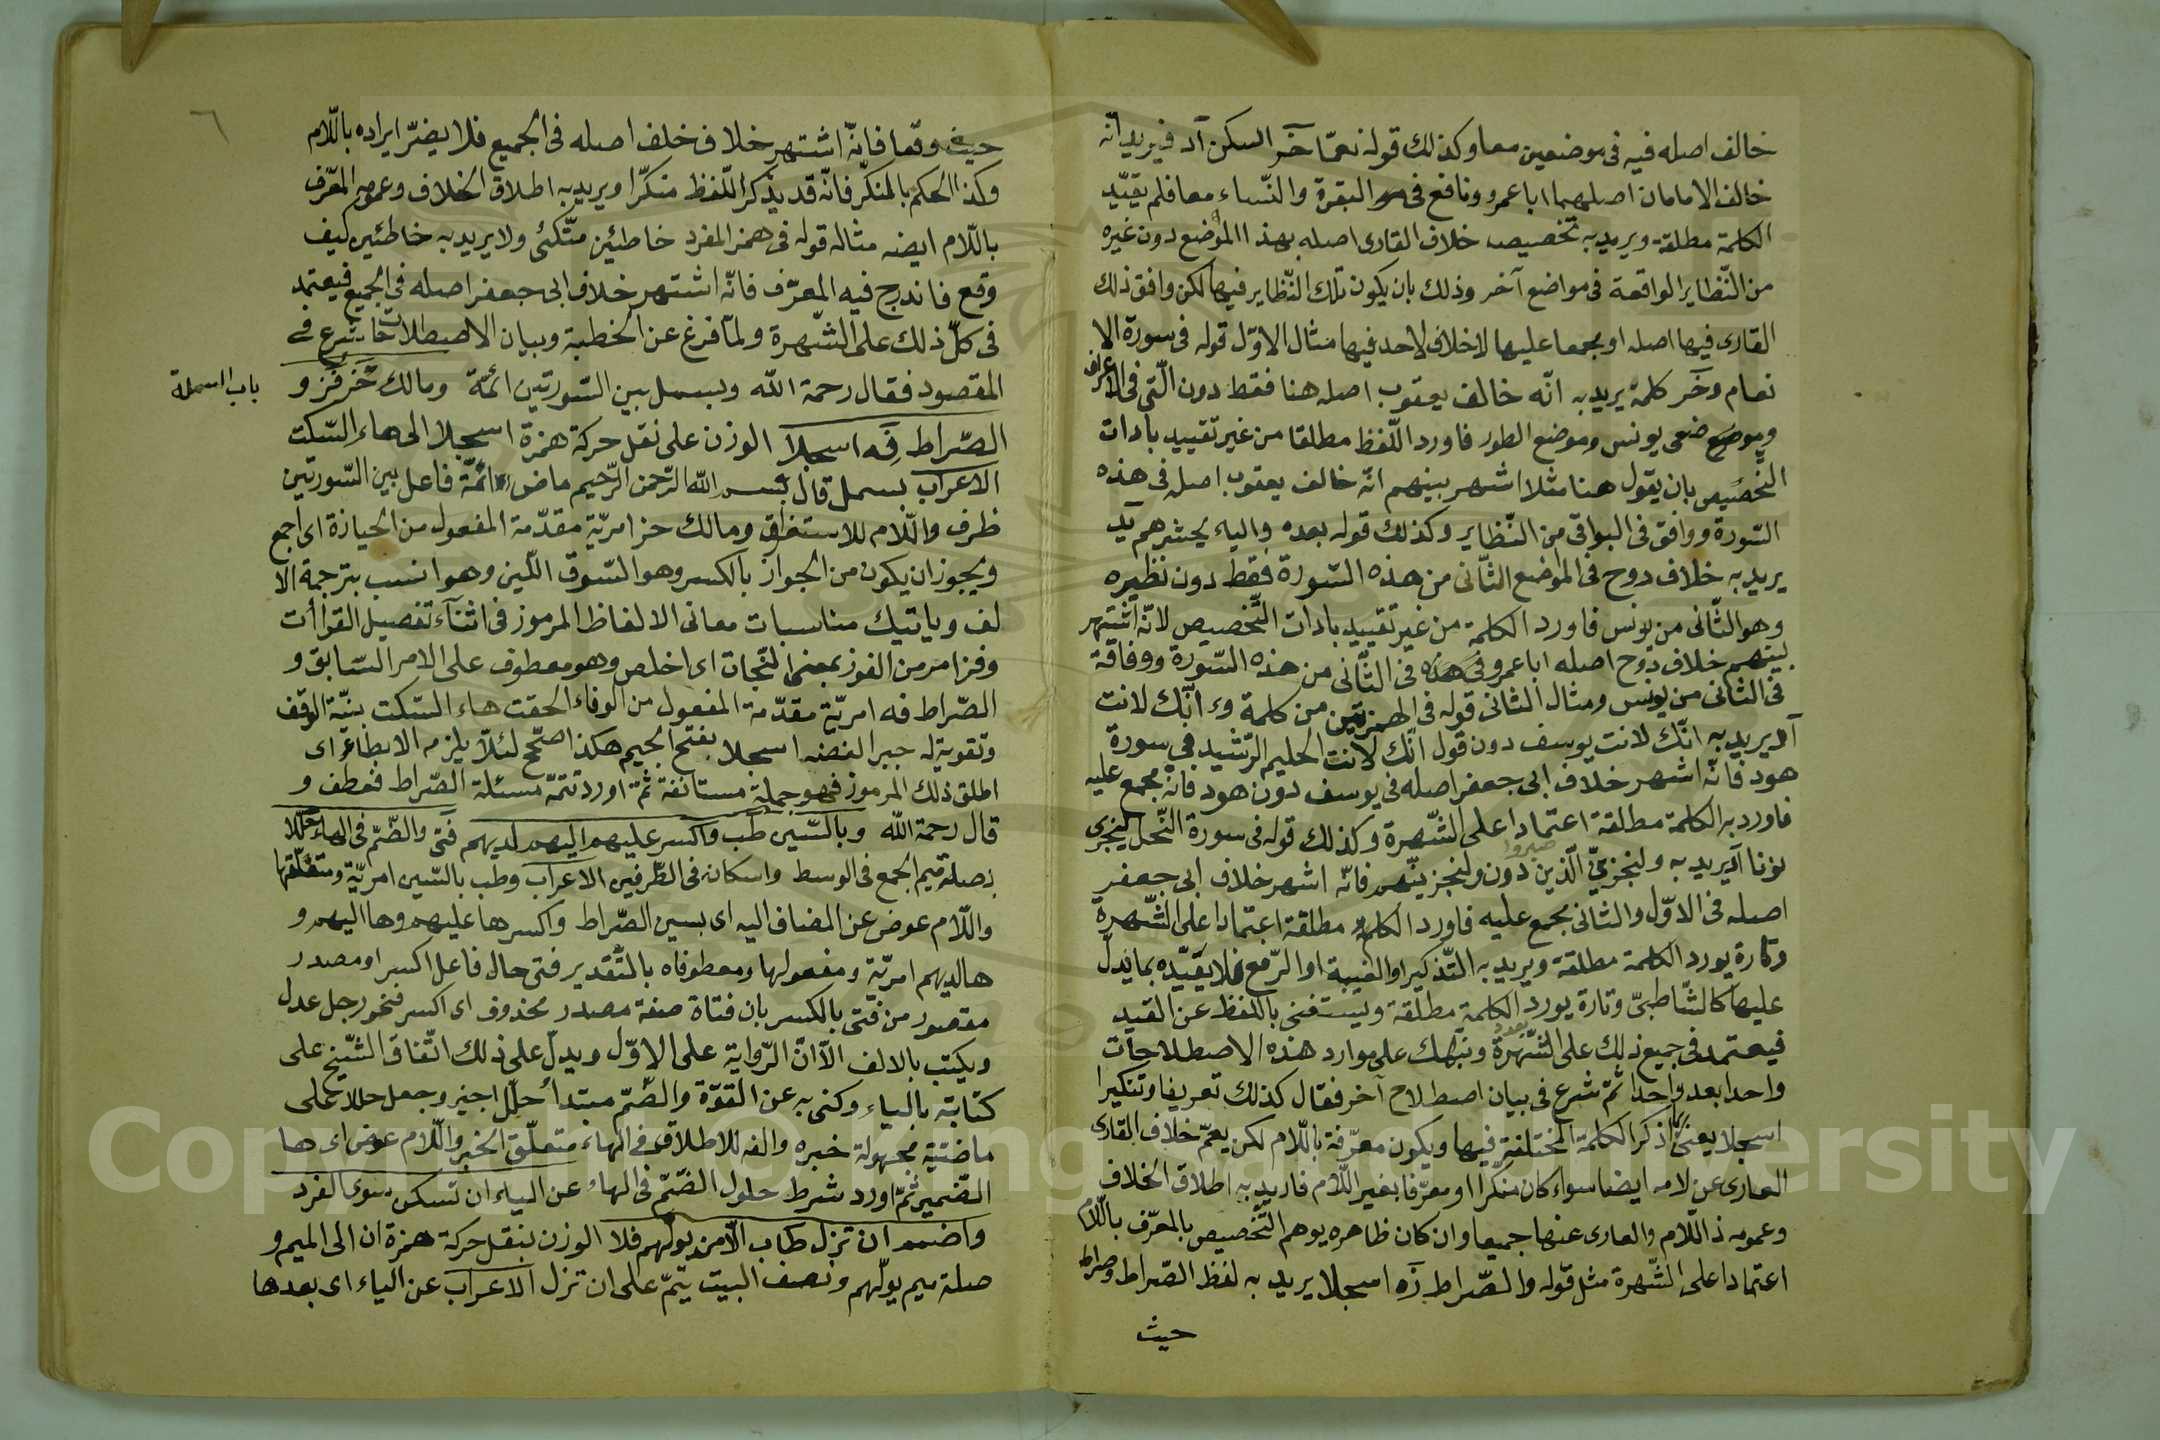 خالف اصله فيه فى موضعين معا وكذلك قوله نعمّا حز اسكن اد فيريد انه
خالف الامامان اصلهما ابا عمرو ونافع فى البقرة والنّساء معا فلم يقيّد
الكلمة مطلقة ويريد به تخصيص خلاف القارى اصله بهذا الموضع دون غيره
من النّظاير الواقعة فى مواضع آخر وذلك بان يكون تلك النّظاير فيها لكن وافق ذلك
القارى فيها اصله او مجمعا عليها لا خلاف لاحد فيها مثال الاوّل قوله فى سورة الا
نعام وحز كلمة يريد به انّه خالف يعقوب اصله هنا فقط دون الّتى فى الاعراف
وموضعى يونس وموضع الطور فاورد اللّفظ مطلقا من غير تقييد بادات
التّخصيص بان يقول هنا مثلا اشهر بينهم انّه خالف يعقوب اصله فى هذه
السّورة ووافق فى البواقى من النّظاير وكذلك قوله بعده والياء يحشرهم يد
يريد به خلاف روح فى الموضع الثّانى من هذه السّورة فقط دون نظيره
وهو الثّانى من يونس فاورد الكلمة من غير تقييد بادات التّخصيص لانّه اشتهر
بينهم خلاف روح اصله ابا عمرو فى الثّانى من هذه السّورة ووفاقه
فى الثانى من يونس ومثال الثانى قوله فى الهمزتين من كلمة وء انّك لانت
اد يريد به انّك لانت يوسف دون قول انّك لانت الحليم الرّشيد فى سورة
هود فانّه اشهر خلاف ابى جعفر اصله فى يوسف دون هود فانّه مجمع عليه
فاورد به الكلمة مطلقة اعتمادا على الشّهرة وكذلك قوله فى سورة النّحل ليجزى
نونا اد يريد به ولنجزينّ الّذين صبروا دون ولنجزينّهم فانّه اشهر خلاف ابى جعفر
اصله فى الاوّل والثانى مجمع عليه فاورد الكلمة مطلقة اعتمادا على الشّهرة
وتارة يورد الكلمة مطلقة ويريد به التّذكير او الغيبة او الرّفع فلا يقيّده بما يدلّ
عليها كالشّاطبىّ وتارة يورد الكلمة مطلقة ويستغنى باللّفظ عن القيد
فيعتمد فى جميع ذلك على الشّهرة وننبّهك على موارد هذه الاصطلاحات
واحدا بعد واحد ثمّ شرع فى بيان اصطلاح آخر فقال كذلك تعريفا وتنكيرا
اسجلا يعنى اذكر الكلمة المختلفة فيها ويكون معرّفة باللّام لكن يعمّ خلاف القارى
العارى عن لامه ايضا سواء كان منكّرا او معرّفا بغير اللّام فاريد به اطلاق الخلاف
وعمومه ذا اللّام والعارى عنها جميعا وان كان ظاهره يوهم التّخصيص بالمعرّف باللّام
اعتمادا على الشّهرة مثل قوله والصّراط فه اسجلا يريد به لفظ الصّراط وصراط
حيث
٦
حيث وقعا فانّه اشتهر خلاف خلف اصله فى الجميع فلا يضرّ ايراده باللّام
وكذا الحكم بالمنكّر فانّه قد يذكر اللّفظ منكّرا ويريد به اطلاق الخلاف وعمومه المعرّف
باللّام ايضه مثاله قوله فى همز المفرد خاطئين متّكئى ولا يريد به خاطئين كيف
وقع فاندرج فيه المعرّف فانّه اشتهر خلاف ابى جعفر اصله فى الجميع فيعتمد
فى كلّ ذلك على الشّهرة ولمّا فرغ عن الخطبة وبيان الاصطلاحات شرع فى
المقصود فقال رحمة الله وبسمل بين السّورتين ائمّة ومالك حز فز و
باب البسملة
الصّراط فه اسجلا الوزن على نقل حركة همزة اسجلا الى هاء السّكت
الاعراب بسمل قال بسم الله الرّحمن الرّحيم ماض ائمّة فاعل بين السّورتين
ظرف واللّام للاستغراق ومالك حز امريّة مقدّمة المفعول من الحيازة اى اجمع
ويجوز ان يكون من الجواز بالكسر وهو السّوق اللّين وهو انسب بترجمة الا
لف وياتيك مناسبات معانى الالفاظ المرموز فى اثناء تفصيل القراأت
وفز امر من الفوز بمعنى النّجات اى اخلص وهو معطوف على الامر السّابق و
الصّراط فه امريّة مقدّمة المفعول من الوفاء الحقت هاء السّكت بنيّة الوقف
وتقوية له جبر النقصه اسجلا بفتح الجيم هكذا صحّ لئلّا يلزم الايطاء اى
اطلق ذلك المرموز فهو جملة مستانفة ثمّ اورد تتمّة مسئلة الصّراط فعطف و
قال رحمة الله وبالسّين طب واكسر عليهم اليهم لديهم فتى والضّمّ فى الهاء حلّلا
بصلة ميم الجمع فى الوسط واسكانه فى الطّرفين الاعراب وطب بالسّين امريّة ومتعلّقها
واللّام عوض عن المضاف اليه اى بسين الصّراط واكسر ها عليهم وها اليهم و
ها لديهم امريّة ومفعولها ومعطوفاه بالتّقدير فتى حال فاعل اكسر او مصدر
مقصور من فتى بالكسر بان فتاة صفة مصدر محذوف اى اكسر فنحو رجل عدل
ويكتب بالالف الّا انّ الرّواية على الاوّل ويدلّ على ذلك اتّفاق الشّيخ على
كتابته بالياء وكنى به عن القوّة والضّمّ مبتدأ حلّل اجيز وجعل حلالا على
ماضيّة مجهولة خبره والفه للاطلاق فى الهاء متعلّق الخبر واللّام عوض اى ها
الضّمير ثمّ اورد شرط حلول الضّمّ فى الهاء عن الياء ان تسكن سوى الفرد
واضمم ان تزل طاب الّا من يولّهم فلا الوزن بنقل حركة همزة ان الى الميم و
صلة ميم يولّهم ونصف البيت يتمّ على ان تزل الاعراب عن الياء اى بعدها
Copyright © King Saud University